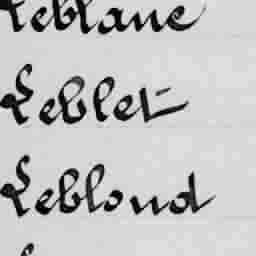 Leblanc
Leblet
Leblond